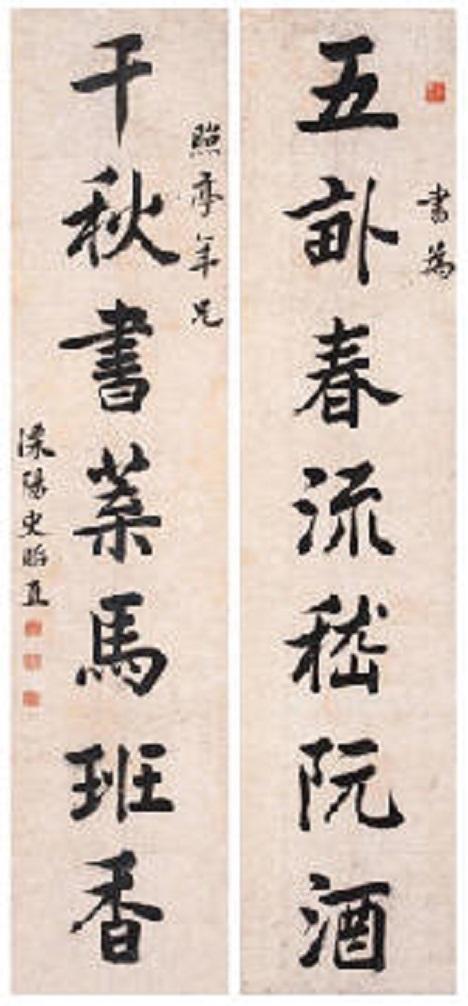 書為
五畝春流嵇阮酒
照亭年兄
千秋書葉馬班香
溧陽史貽直